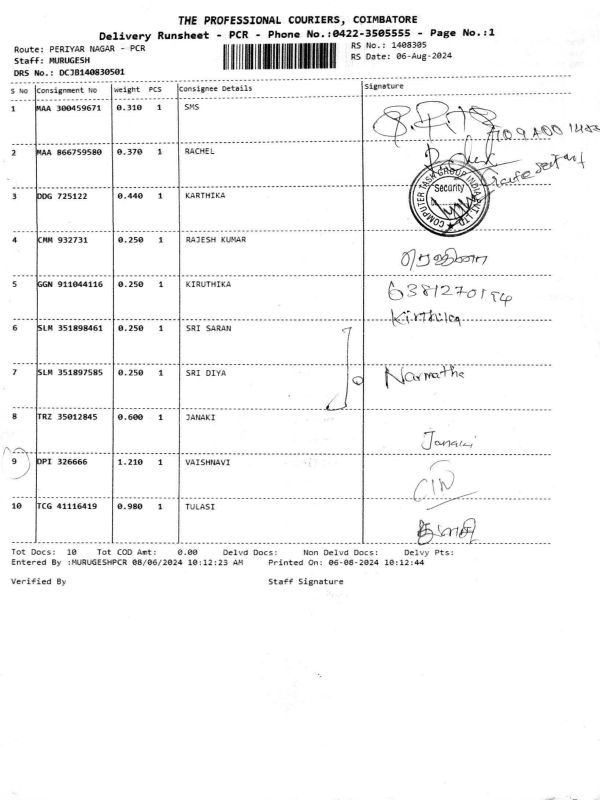 THE PROFESSIONAL COURIERS, COIMBATORE
Delivery Runsheet - PCR - Phone No.:0422-3505555 - Page No.:1
Route: PERIYAR NAGAR - PCR
Staff: MURUGESH
DRS No.: DCJB140830501
RS No.: 1408305
RS Date: 06-Aug-2024
S No Consignment No Weight PCS Consignee Details Signature
1 MAA 300459671 0.310 1 SMS
2 MAA 866759580 0.370 1 RACHEL Rachel
COMPUTER TASK GROUP INDIA PVT LTD
Security
3 DDG 725122 0.440 1 KARTHIKA
4 CMM 932731 0.250 1 RAJESH KUMAR
5 GGN 911044116 0.250 1 KIRUTHIKA 6381270194
Kirthika
6 SLM 351898461 0.250 1 SRI SARAN
7 SLM 351897585 0.250 1 SRI DIYA Narmatha
8 TRZ 35012845 0.600 1 JANAKI Janaki
9 DPI 326666 1.210 1 VAISHNAVI
10 TCG 41116419 0.980 1 TULASI
Tot Docs: 10 Tot COD Amt: 0.00 Delvd Docs: Non Delvd Docs: Delvy Pts:
Entered By :MURUGESHPCR 08/06/2024 10:12:23 AM Printed On: 06-08-2024 10:12:44
Verified By Staff Signature